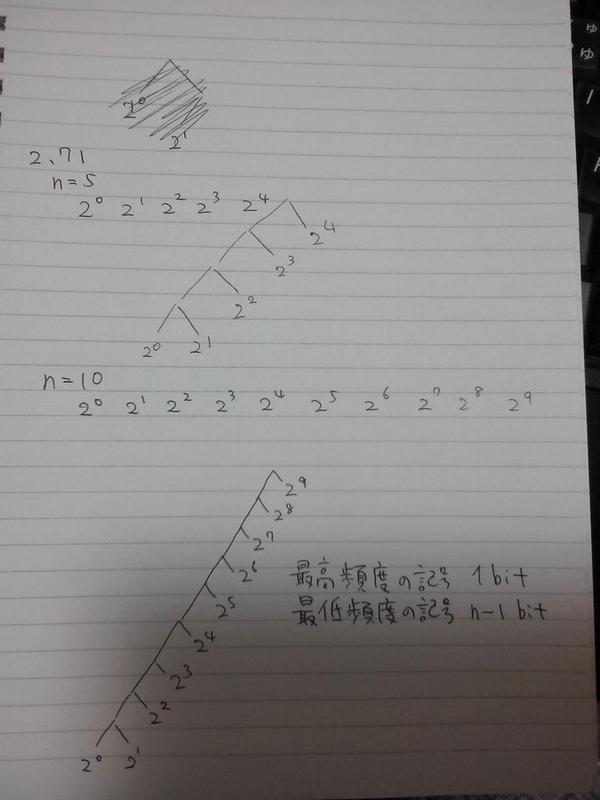 2⁰
2¹
2.71
n=5
2⁰ 2¹ 2² 2³ 2⁴
2⁴
2³
2²
2⁰ 2¹
n=10
2⁰ 2¹ 2² 2³ 2⁴ 2⁵ 2⁶ 2⁷ 2⁸ 2⁹
2⁹
2⁸
2⁷
2⁶
2⁵
2⁴
2³
2²
2⁰ 2¹
最高頻度の記号 1bit
最低頻度の記号 n-1bit